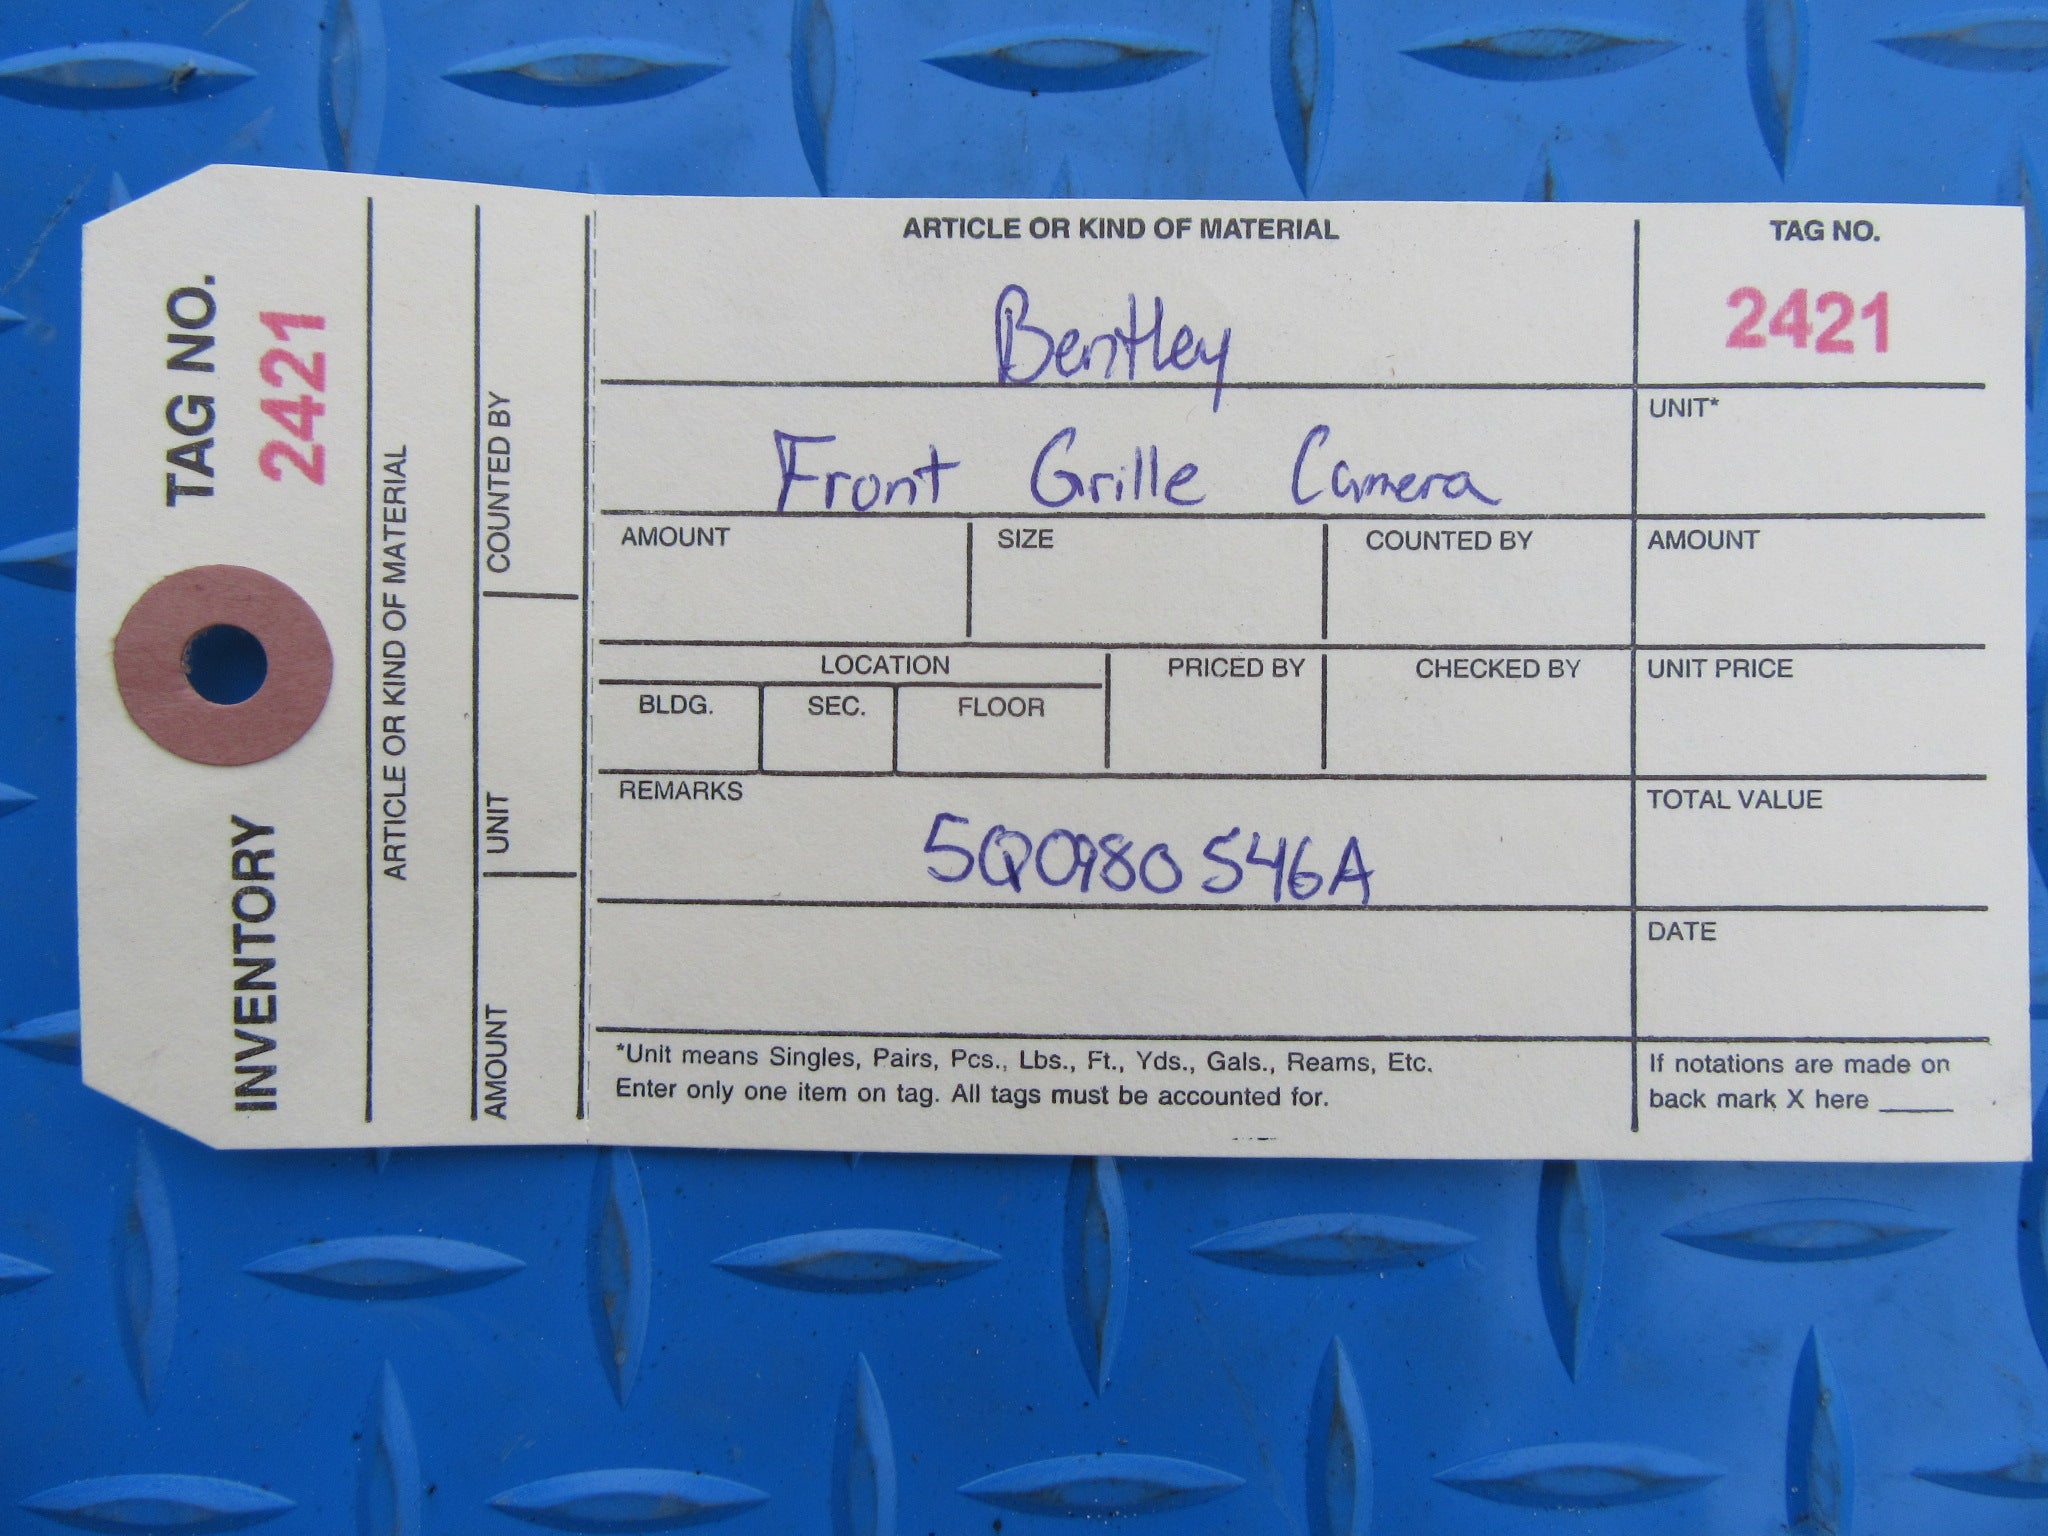 TAG NO.
2421
INVENTORY
ARTICLE OR KIND OF MATERIAL
COUNTED BY
UNIT
AMOUNT
ARTICLE OR KIND OF MATERIAL
TAG NO.
Bentley
2421
Front Grille Camera
UNIT*
AMOUNT
SIZE
COUNTED BY
AMOUNT
LOCATION
PRICED BY
CHECKED BY
UNIT PRICE
BLDG.
SEC.
FLOOR
REMARKS
TOTAL VALUE
5Q0980546A
DATE
*Unit means Singles, Pairs, Pcs., Lbs., Ft., Yds., Gals., Reams, Etc.
Enter only one item on tag. All tags must be accounted for.
If notations are made on
back mark X here ____